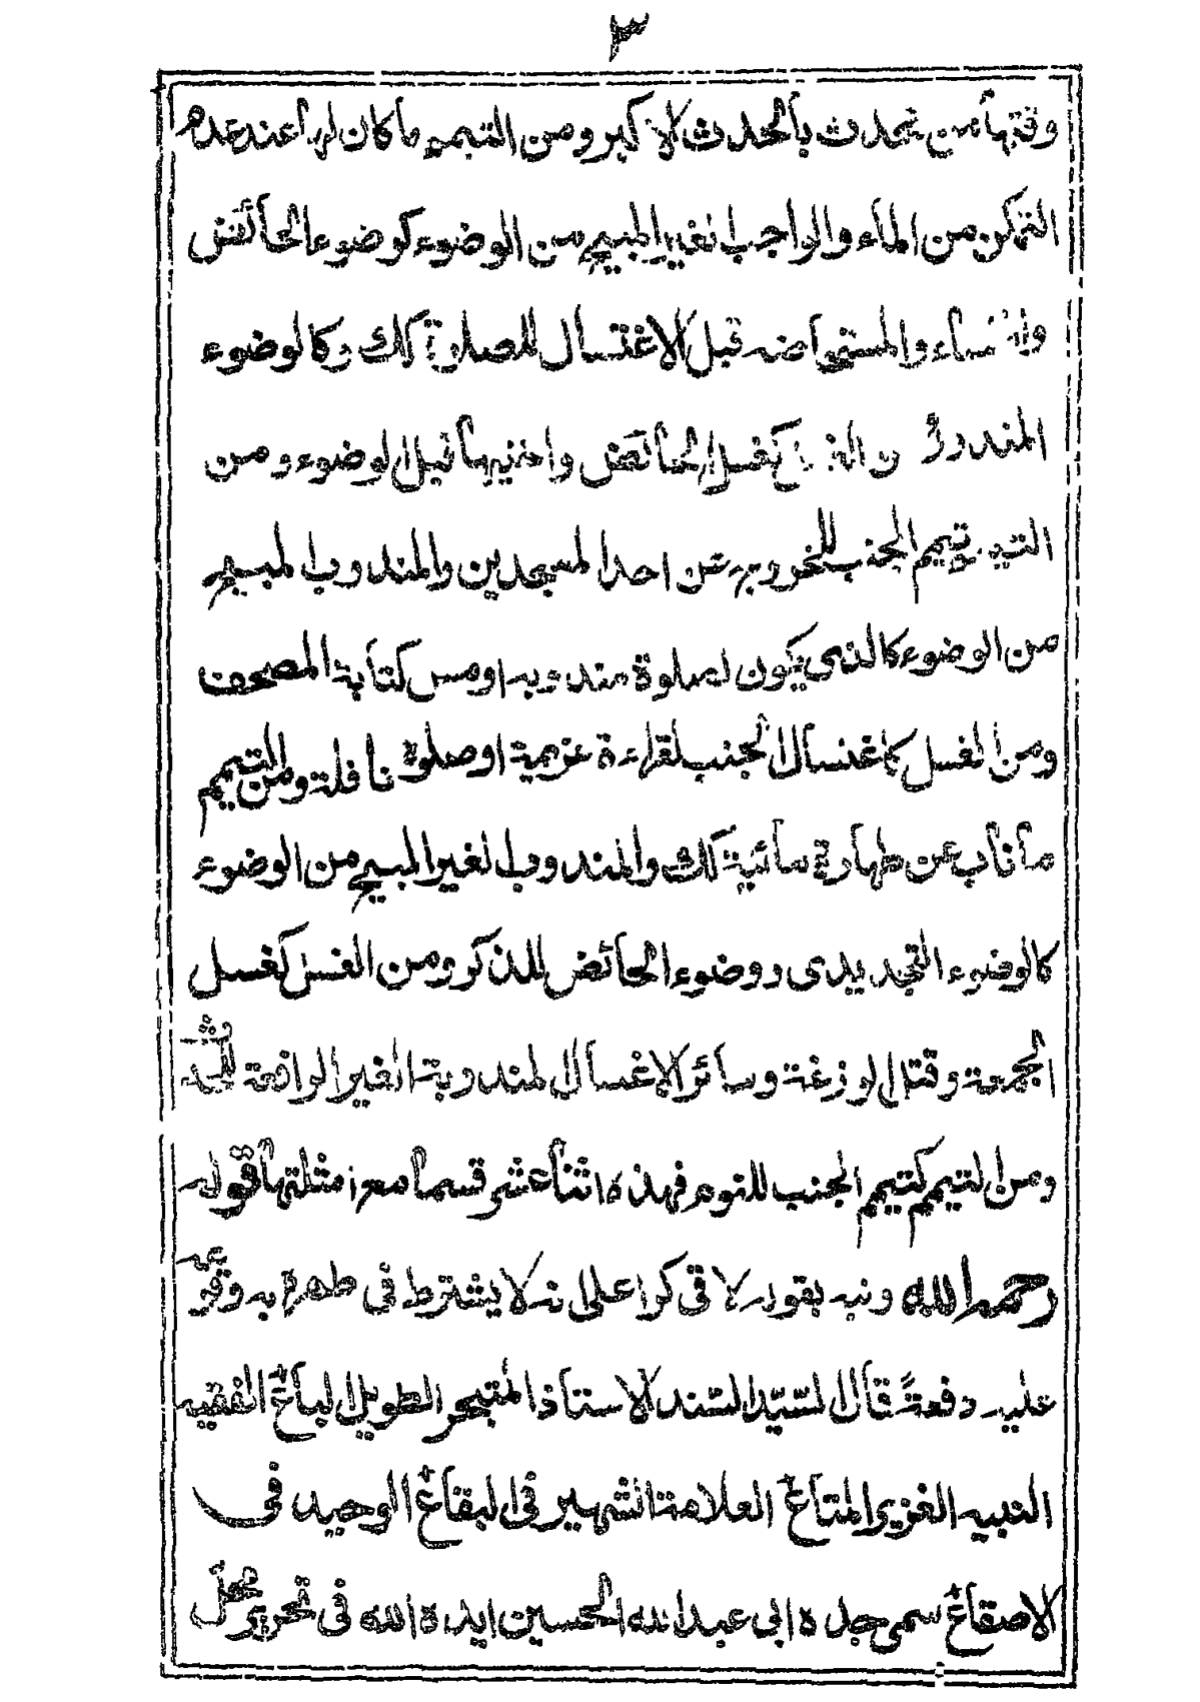 ٣
وقتها من محدث بالحدث الاكبر ومن التيمم ما كان لها عند عدم
التمكن من الماء والواجب الغير المبيح من الوضوء كوضوء الحائض
والنفساء والمستحاضه قبل الاغتسال للصلوة كلك وكالوضوء
المندور ومن الغسل كغسل الحائض واختيها قبل الوضوء ومن
التيمم تيمم الجنب للخروج عن احد المسجدين والمندوب المبيح
من الوضوء كالذى يكون لصلوة مندوبه او مس كتابة المصحف
ومن الغسل كاغتسال الجنب لقراءة عزيمة او صلوة نافلة ومن التيمم
ما ناب عن طهارة مائية كلك والمندوب الغير المبيح من الوضوء
كالوضوء التجديدى ووضوء الحائض للذكر ومن الغسل كغسل
الجمعة وقتل الوزغة وسائر الاغسال المندوبة الغير الرافعة للحدث
ومن التيمم كتيمم الجنب للنوم فهذه اثنا عشر قسما مع امثلتها قوله
رحمه الله ونبه بقوله لا فى كرا على انه لا يشترط فى طهره به وقوعه
عليه دفعةً قال السيّد السند الاستاذ المتبحر الطويل الباع الفقيه
النبيه الغزير المتاع العلامة الشهير فى البقاع الوحيد فى
الاصقاع سمى جده ابى عبد الله الحسين ايده الله فى تحرير محل